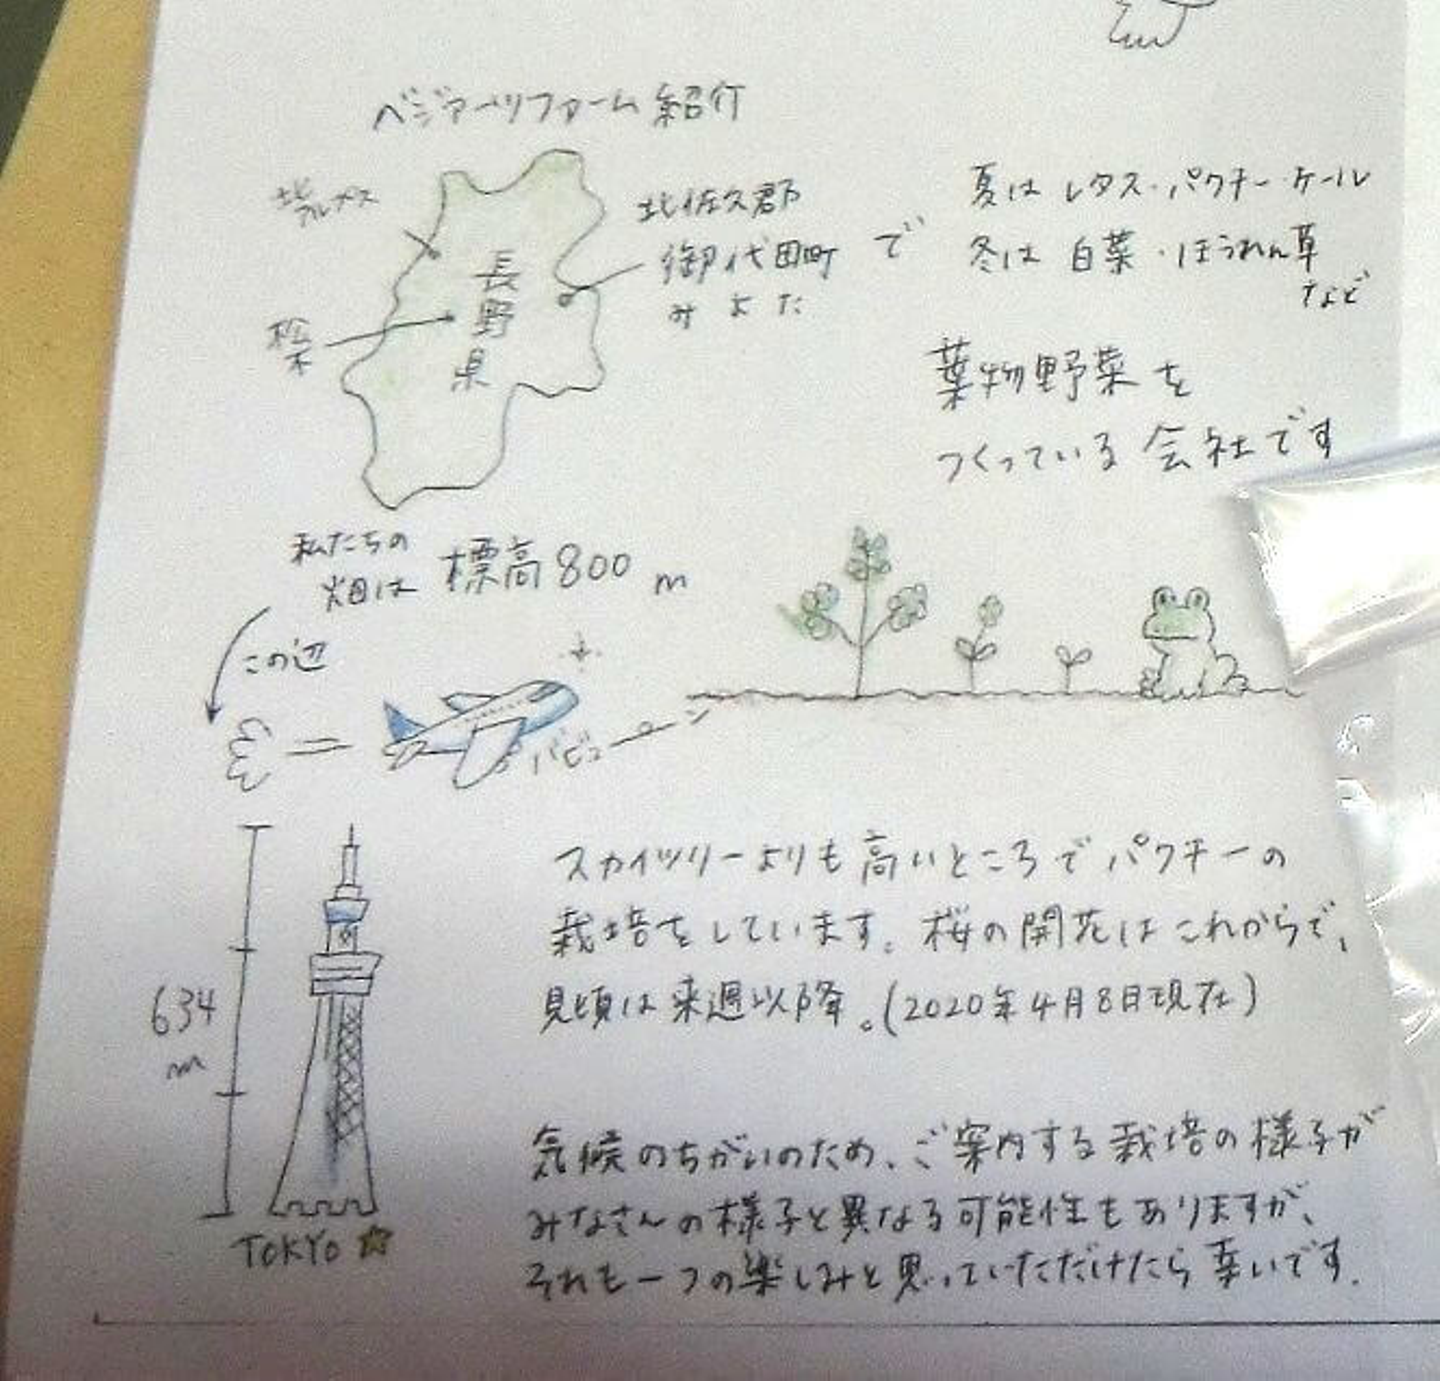 ベジアーツファーム紹介
北アルプス
長野県
松本
北佐久郡
御代田町で
みよた
夏は レタス・パクチー・ケール
冬は 白菜・ほうれん草
など
葉物野菜を
つくっている会社です
私たちの
畑は 標高800m
この辺
バビュ
634
m
TOKYO
スカイツリーよりも高いところでパクチーの
栽培をしています。桜の開花はこれからで、
見頃は来週以降。(2020年4月8日現在)
気候のちがいのため、ご案内する栽培の様子が
みなさんの様子と異なる可能性もありますが、
それも一つの楽しみと思っていただけたら幸いです.